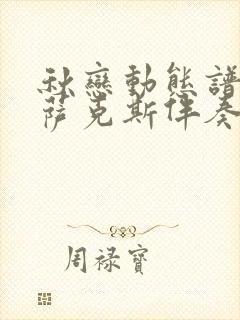 秋戀動態譜
薩克斯伴奏
周禄寶